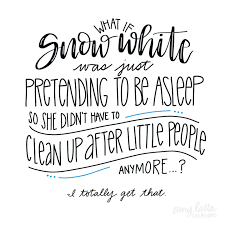 WHAT IF
Snow white
was just
PRETENDING TO BE ASLEEP
SO SHE DIDN'T HAVE TO
CLEAN UP AFTER LITTLE PEOPLE
ANYMORE...?
I totally get that.